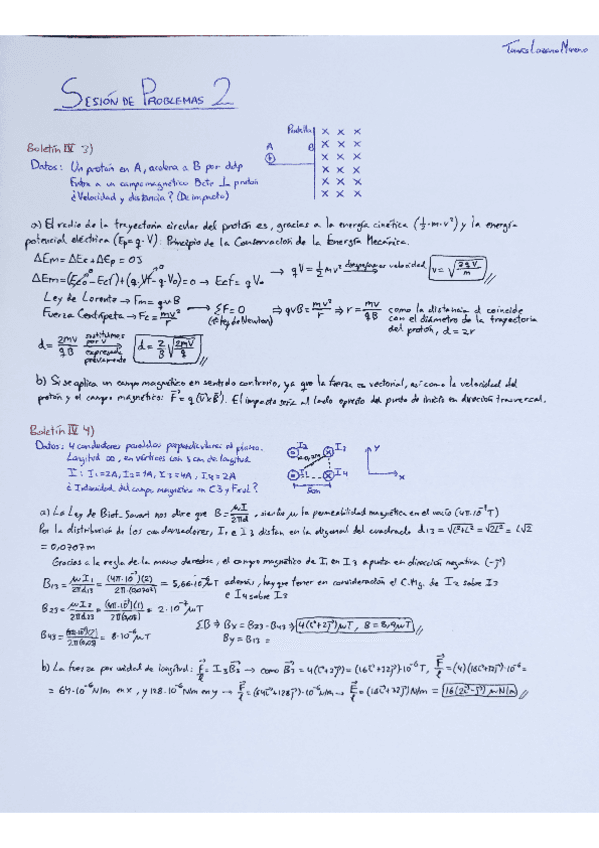 Tomás Lozano Moreno
SESIÓN DE PROBLEMAS 2
Boletín IV 3)
Datos: Un protón en A, acelera a B por ddp
Entra a un campo magnético B cte ⊥ protón
¿Velocidad y distancia? (De impacto)
Pantalla
A B
a) El radio de la trayectoria circular del protón es, gracias a la energía cinética (½·m·v²) y la energía
potencial eléctrica (Ep = q·V): Principio de la Conservación de la Energía Mecánica.
ΔEm = ΔEc + ΔEp = 0J
ΔEm = (Ec0 - Ecf) + (q·Vf - q·V0) = 0 → Ecf = qV0 → qV = ½mv² despejamos velocidad v = √(2qV/m)
Ley de Lorentz → Fm = qvB
Fuerza Centrípeta → Fc = mv²/r → ΣF = 0 ⇒ qvB = mv²/r ⇒ r = mv/qB como la distancia d coincide
(ley de Newton) con el diámetro de la trayectoria
del protón, d = 2r
d = 2mv/qB sustituimos por v expresada previamente d = 2/B √(2mV/q)
b) Si se aplica un campo magnético en sentido contrario, ya que la fuerza es vectorial, así como la velocidad del
protón y el campo magnético: F = q(v×B). El impacto sería al lado opuesto del punto de inicio en dirección transversal.
Boletín IV 4)
Datos: 4 conductores paralelos perpendiculares al plano.
Longitud ∞, en vértices con 5 cm de longitud
I: I1=2A, I2=1A, I3=4A, I4=2A
¿Intensidad del campo magnético en C3 y Fmal?
I2 I3
I1 I4
5cm
y
x
a) La Ley de Biot-Savart nos dice que B = μI/2πd, siendo μ la permeabilidad magnética en el vacío (4π·10⁻⁷T)
Por la distribución de los condensadores, I1 e I3 distan en la diagonal del cuadrado d13 = √(L²+L²) = √2L² = L√2
= 0,0707m
Gracias a la regla de la mano derecha, el campo magnético de I1 en I3 apunta en dirección negativa (-j)
B13 = μI1/2πd13 = (4π·10⁻⁷)(2)/2π·(0,0707) = 5,66·10⁻⁶μT además, hay que tener en consideración el C.Mg. de I2 sobre I3
e I4 sobre I3
ΣB ⇒ Bx = B23 - B43 ⇒ 4(i+2j)μT, B = 8,9μT
By = B13 =
b) La fuerza por unidad de longitud: F/ℓ = I3B3 → como B3 = 4(i+2j) = (16i+32j)·10⁻⁶T, F/ℓ = (4)(16i+32j)·10⁻⁶ =
= 64·10⁻⁶N/m en x, y 128·10⁻⁶N/m en y → F/ℓ = (64i+128j)·10⁻⁶N/m → F/ℓ = (16i+32j)N/m = 16(2i-j)μN/m